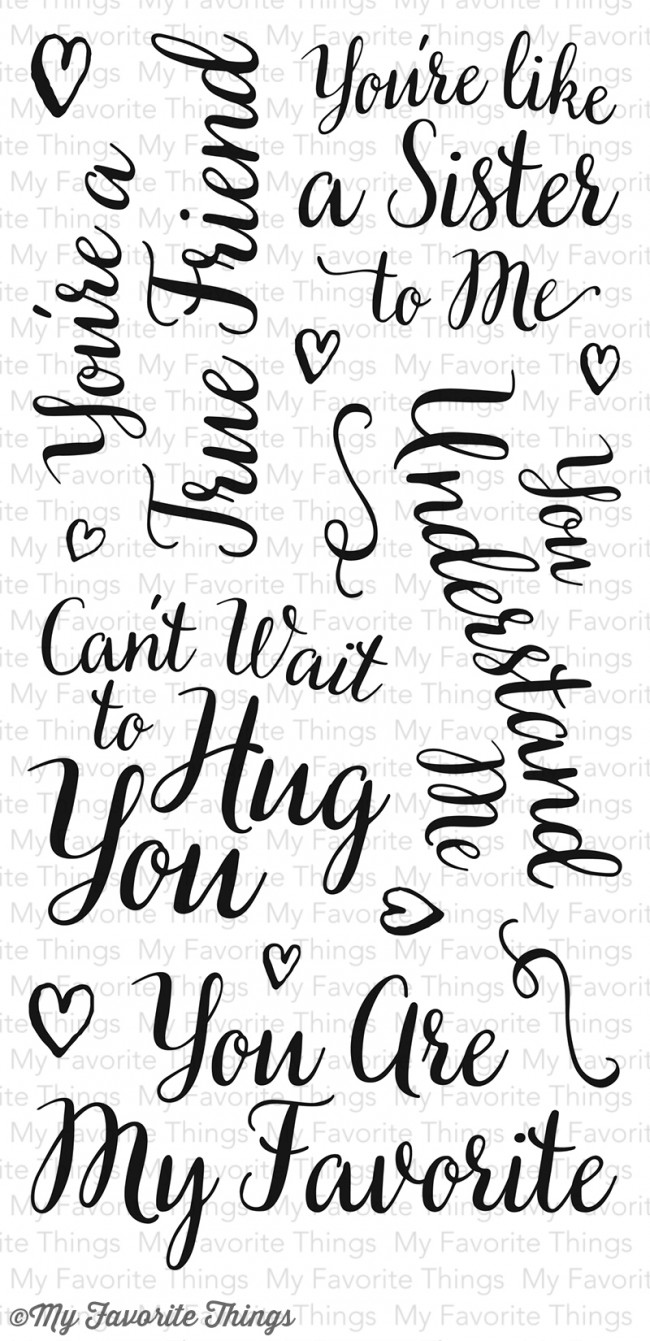 You're a
True Friend
You're like
a Sister
to Me
You
Understand
Me
Can't Wait
to Hug
You
You Are
My Favorite
©My Favorite Things